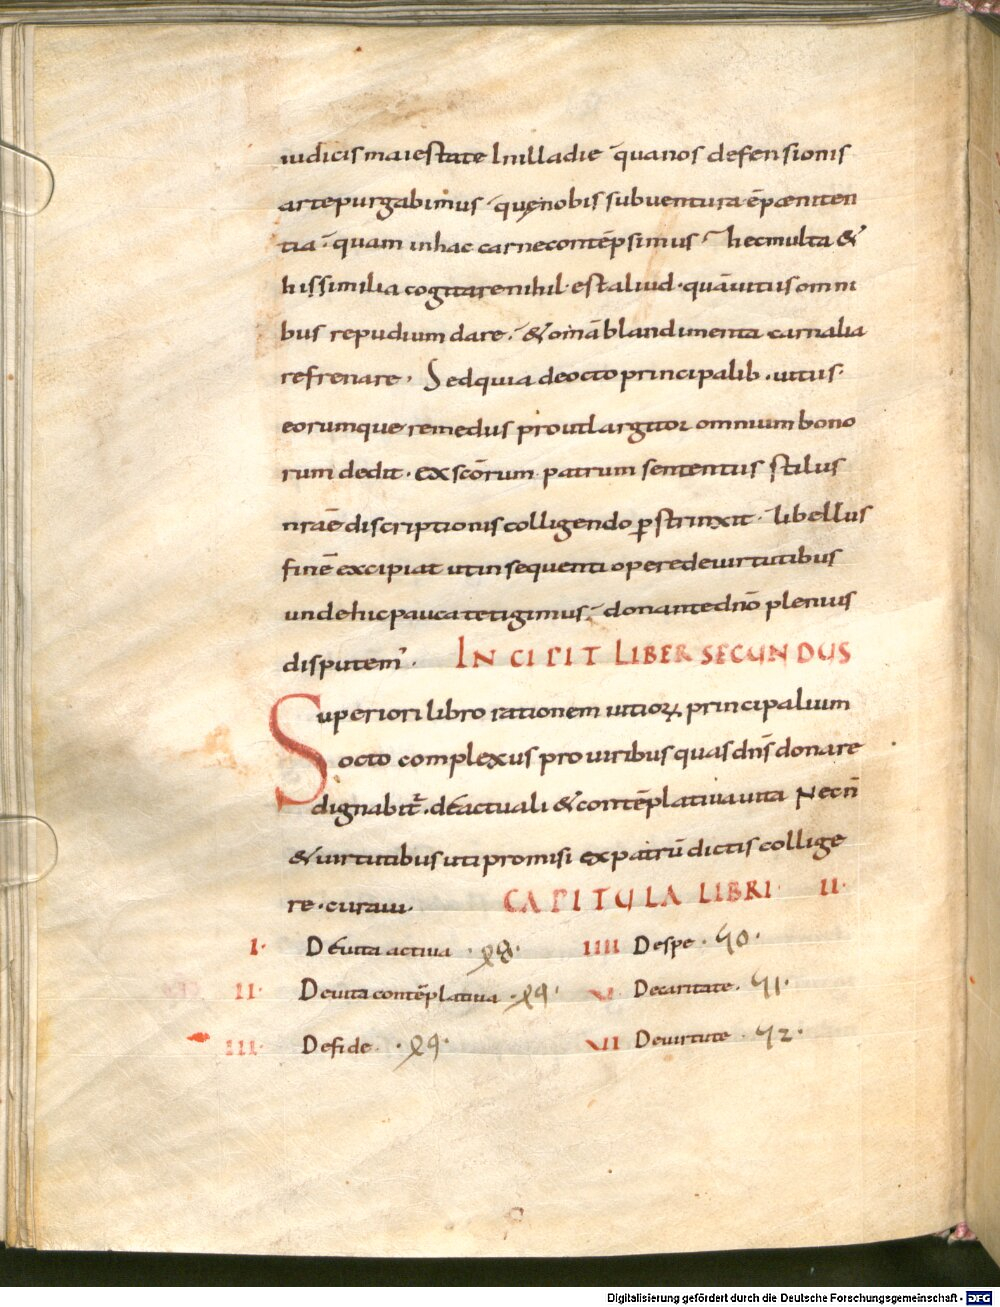 iudicis maiestate In illa die quanos defensionis
arte purgabimus · quę nobis subuentura ē pæniten
tia · quam in hac carne contēpsimus · hec multa &
his similia cogitare nihil est aliud · quā uitiis omni
bus repudium dare · & oīnā blandimenta carnalia
refrenare · Sed quia de octo principalib · uitiis ·
eorumque remediis prout largitor omnium bono
rum dedit · ex scōrum patrum sententiis stilus
nr̄ae discriptionis colligendo ꝑstrinxit · libellus
finē excipiat ut in sequenti opere de uirtutibus
unde hic pauca tetigimus · donante dnō plenius
disputem · INCIPIT LIBER SECUNDUS
Superiori libro rationem uitioꝝ principalium
octo complexus pro uiribus quas dn̄s donare
dignabit̄ · de actuali & contēplatiua uita Necn̄
& uirtutibus uti promisi ex patrū dictis collige
re · curaui · CAPITULA LIBRI · II ·
I · De uita actiua · 48 · IIII De spe · 50 ·
II · De uita contēplatiua · 49 · V De caritate · 51 ·
III · De fide · 49 · VII De uirtute · 52 ·